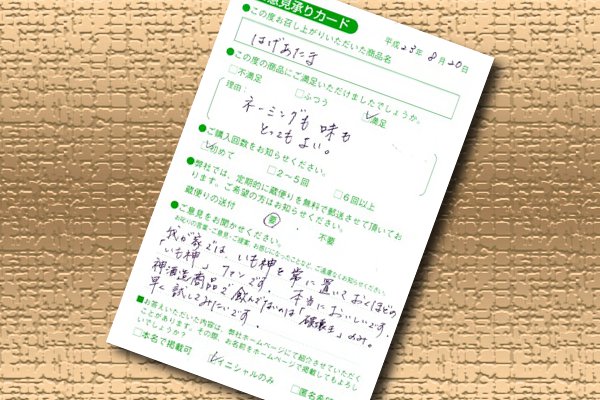 意見承りカード
平成23年 8月20日
●この度お召し上がりいただいた商品名
はげあたま
●この度の商品にご満足いただけましたでしょうか。
□不満足 □ふつう ☑満足
理由:
ネーミングも 味も
とってもよい。
●ご購入回数をお知らせください。
☑初めて □2～5回 □6回以上
●弊社では、定期的に蔵便りを無料で郵送させて頂いてお
ります。ご希望の方はお知らせください。
蔵便りの送付 要 ・ 不要
●ご意見をお聞かせください。
我が家では、いも神を常に置いておくほどの
「いも神」ファンです。本当においしいです。
神酒造商品で飲んでないのは「破壊王」のみ。
早く試してみたいです。
■お答えいただいた内容は、弊社ホームページにて紹介させていただく
ことがあります。その際、お名前をホームページで掲載してもよろし
いでしょうか?
□本名で掲載可 ☑イニシャルのみ □匿名希